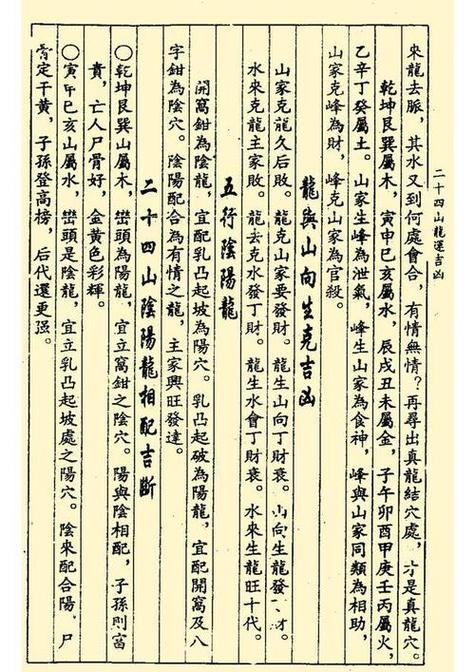 二十四山龍運吉凶
來龍去脈，其水又到何處會合，有情無情？再尋出真龍結穴處，才是真龍穴。
乾坤艮巽屬木，寅申巳亥屬水，辰戌丑未屬金，子午卯酉甲庚壬丙屬火，
乙辛丁癸屬土。山家生峰為泄氣，峰生山家為食神，峰與山家同類為相助，
山家克峰為財，峰克山家為官殺。
龍與山向生克吉凶
山家克龍久后敗。龍克山家要發財。龍生山向丁財衰。山向生龍發丁才。
水來克龍主家敗。龍去克水發丁財。龍生水會丁財衰。水來生龍旺十代。
五行陰陽龍
開窩鉗為陰龍，宜配乳凸起坡為陽穴。乳凸起破為陽龍，宜配開窩及八
字鉗為陰穴。陰陽配合為有情之龍，主家興旺發達。
二十四山陰陽龍相配吉断
○乾坤艮巽山屬木，巒頭為陽龍，宜立窩鉗之陰穴。陽與陰相配，子孫則富
貴，亡人尸骨好，金黄色彩輝。
○寅申巳亥山屬水，巒頭是陰龍，宜立乳凸起坡處之陽穴。陰來配合陽，尸
骨定干黄，子孫登高榜，后代還更强。